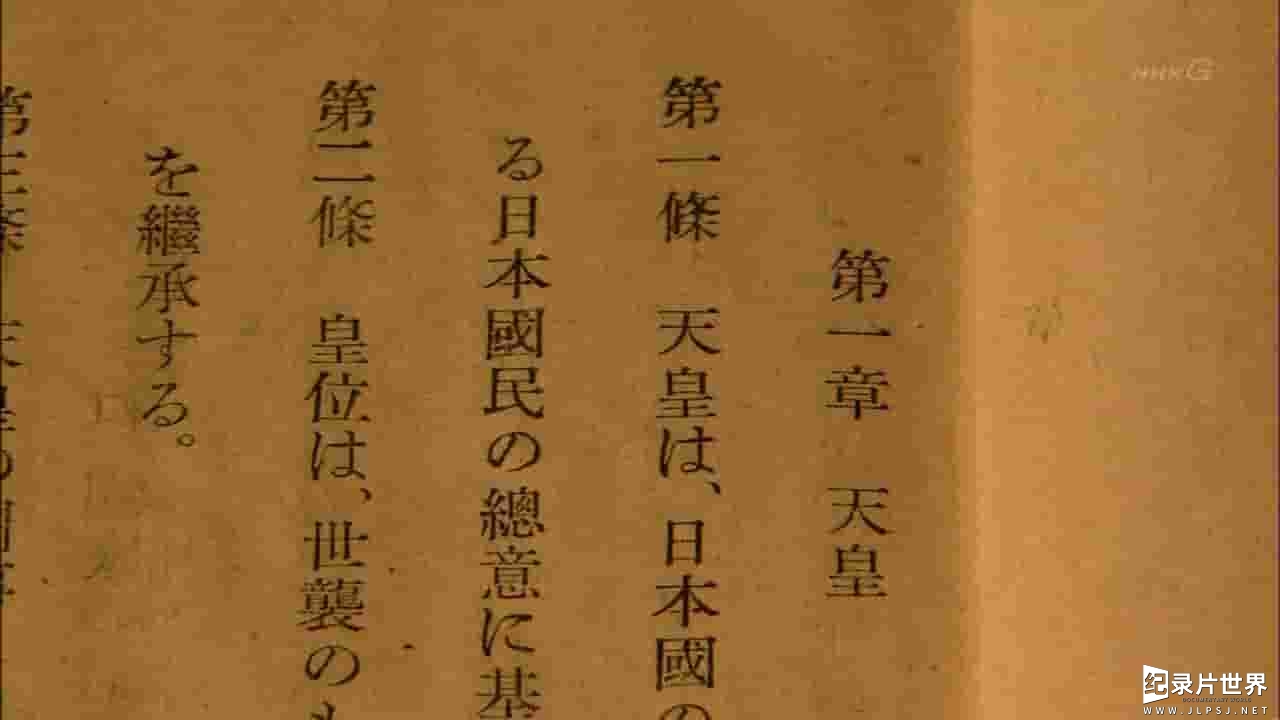 第一章 天皇
第一條 天皇は、日本國の
る日本國民の總意に基
第二條 皇位は、世襲のも
を繼承する。
第三條 天皇の國事
NHK G
纪录片世界
DOCUMENTARY WORLD
WWW.JLPSJ.NET